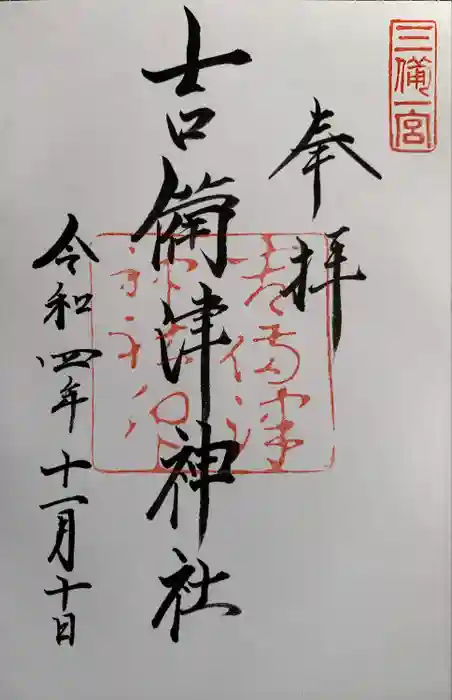 三備一宮
奉拝
吉備津神社
令和四年十一月十日